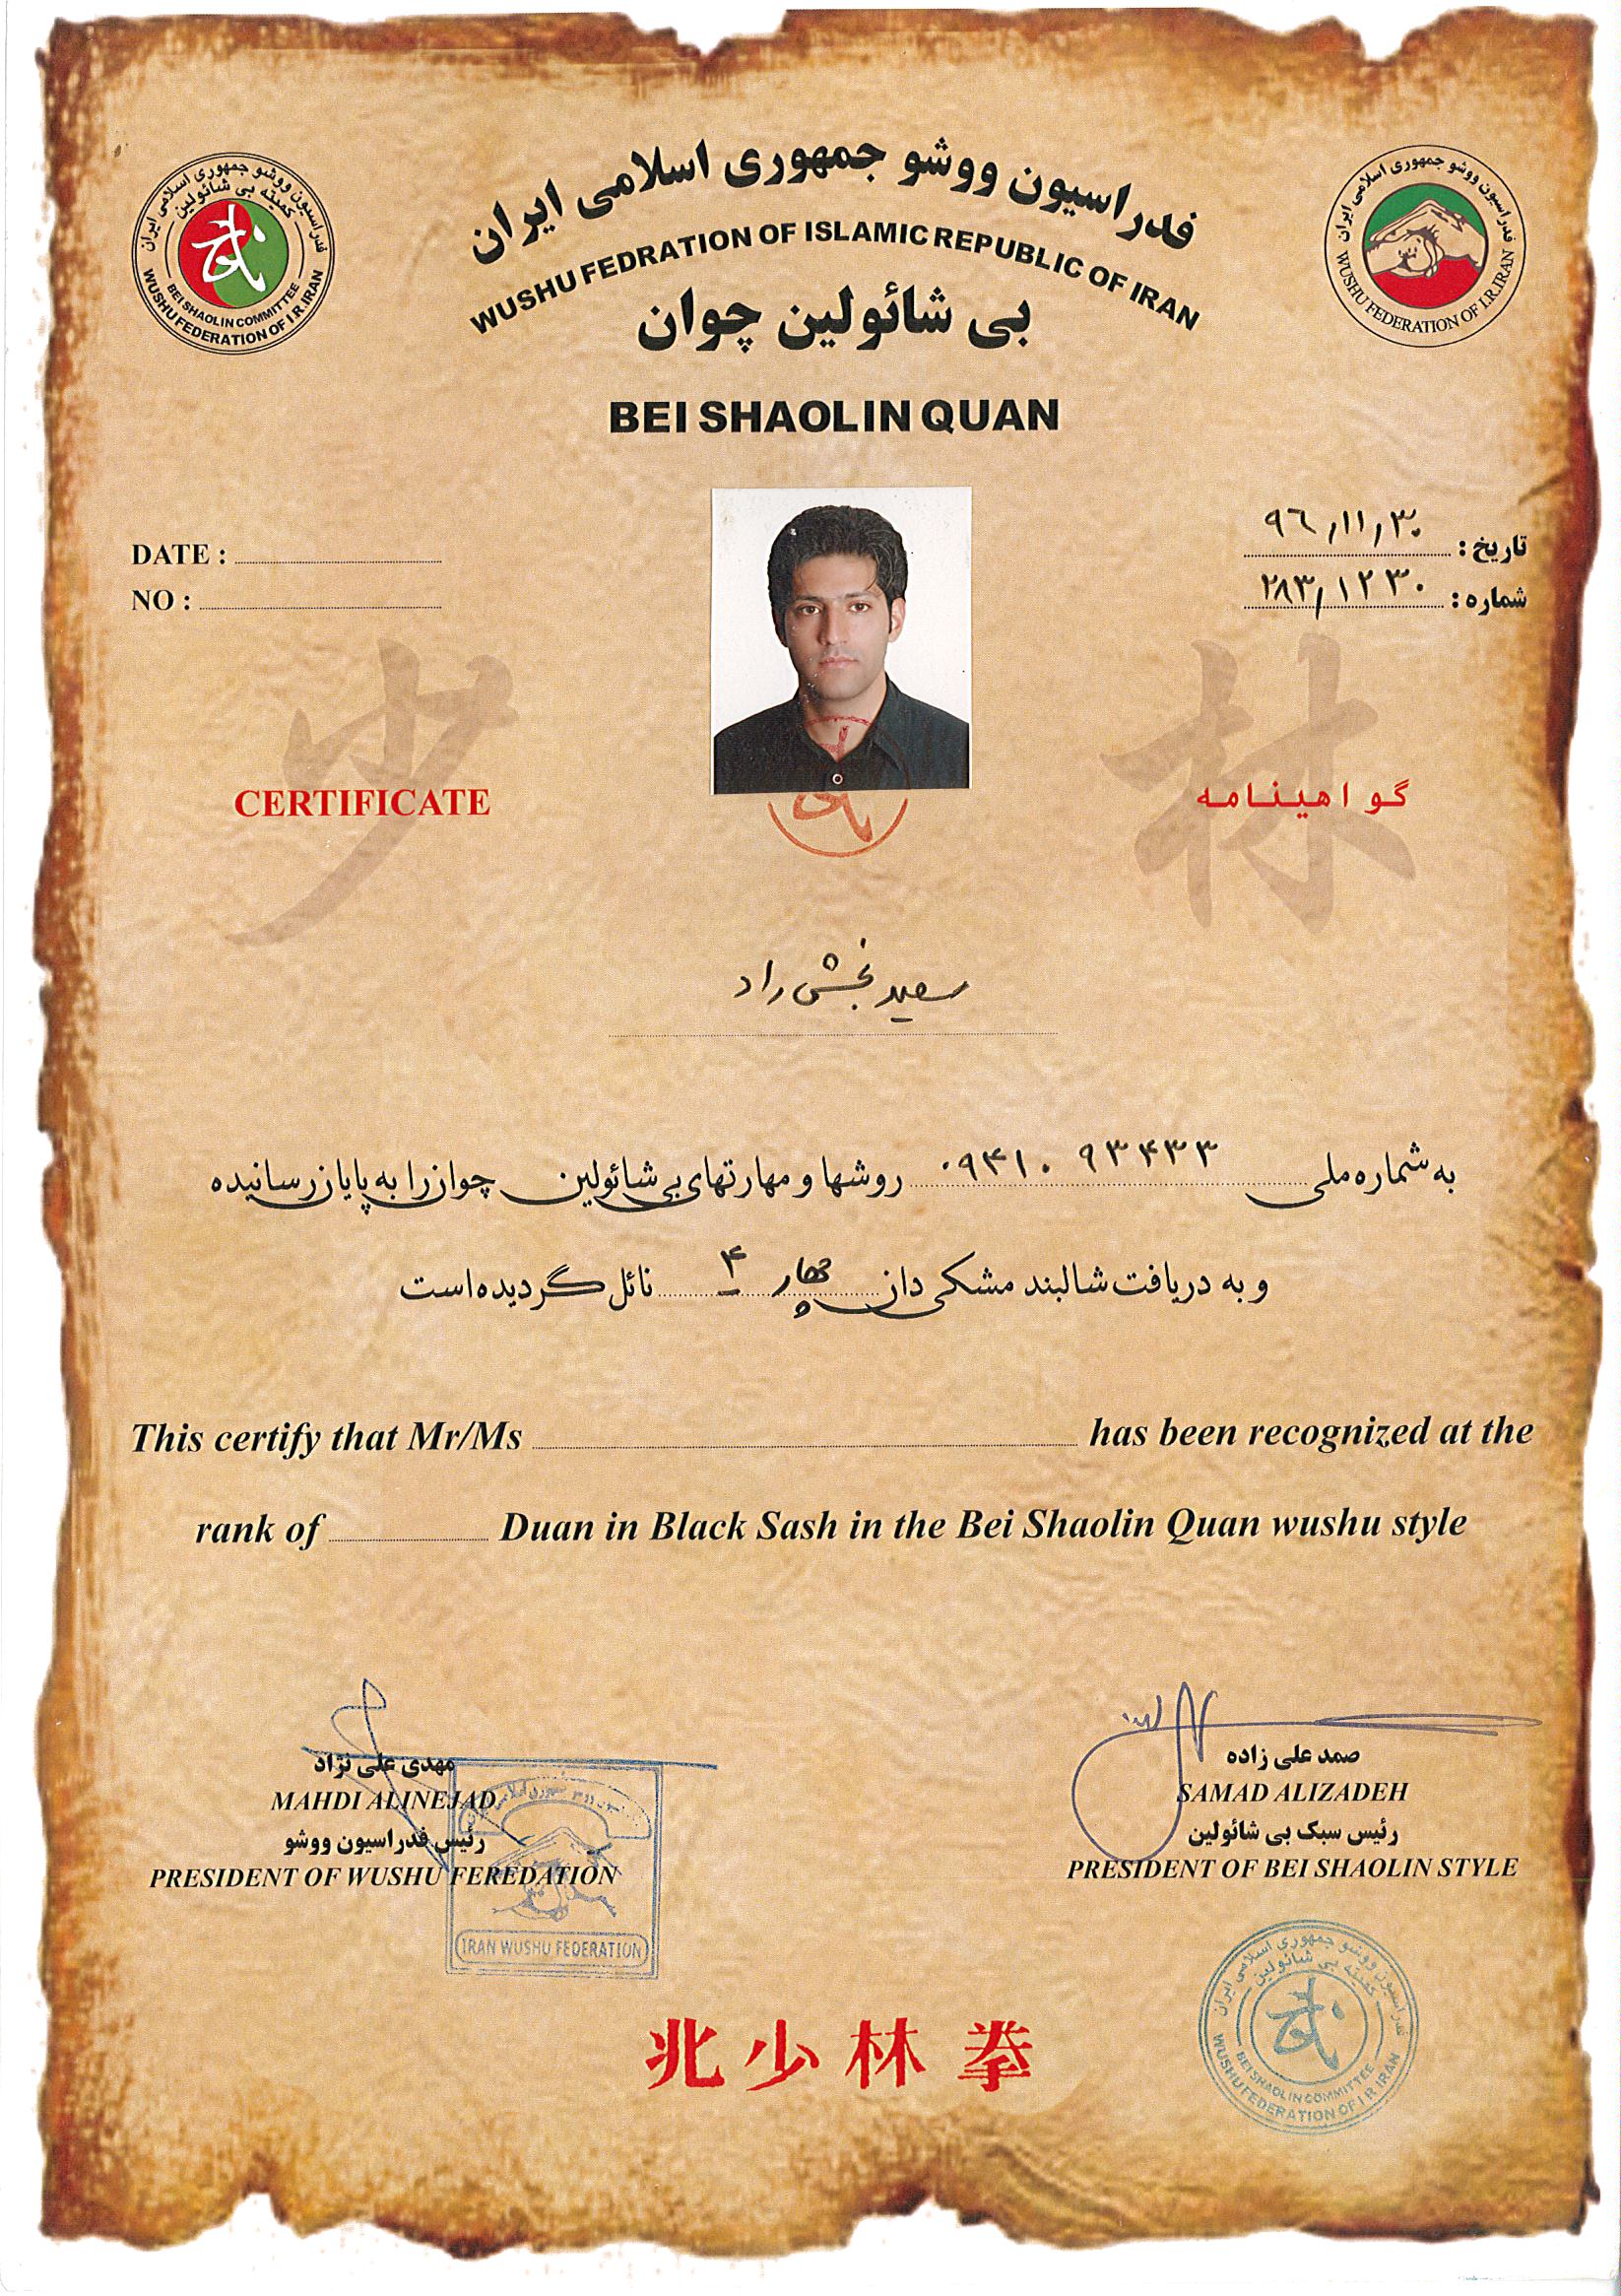 فدراسیون ووشو جمهوری اسلامی ایران
WUSHU FEDRATION OF ISLAMIC REPUBLIC OF IRAN
بی شائولین چوان
BEI SHAOLIN QUAN
فدراسیون ووشو جمهوری اسلامی ایران
کمیته بی شائولین
BEI SHAOLIN COMMITTEE
WUSHU FEDERATION OF I.R.IRAN
فدراسیون ووشو جمهوری اسلامی ایران
WUSHU FEDERATION OF I.R.IRAN
تاریخ: ۹۶/۱۱/۳۰
شماره: ۲۸۳/۱۲۳۰
DATE :
NO :
少 林
CERTIFICATE
گواهینامه
سعید بخشی راد
به شماره ملی ۰۹۴۱۰۹۳۴۳۳ روشها و مهارتهای بی شائولین چوان را به پایان رسانیده
و به دریافت شالبند مشکی دان چهار ۴ نائل گردیده است
This certify that Mr/Ms has been recognized at the
rank of Duan in Black Sash in the Bei Shaolin Quan wushu style
مهدی علی نژاد
MAHDI ALINEJAD
رئیس فدراسیون ووشو
PRESIDENT OF WUSHU FEREDATION
IRAN WUSHU FEDERATION
صمد علی زاده
SAMAD ALIZADEH
رئیس سبک بی شائولین
PRESIDENT OF BEI SHAOLIN STYLE
فدراسیون ووشو جمهوری اسلامی ایران
کمیته بی شائولین
BEI SHAOLIN COMMITTEE
WUSHU FEDERATION OF I.R.IRAN
北少林拳